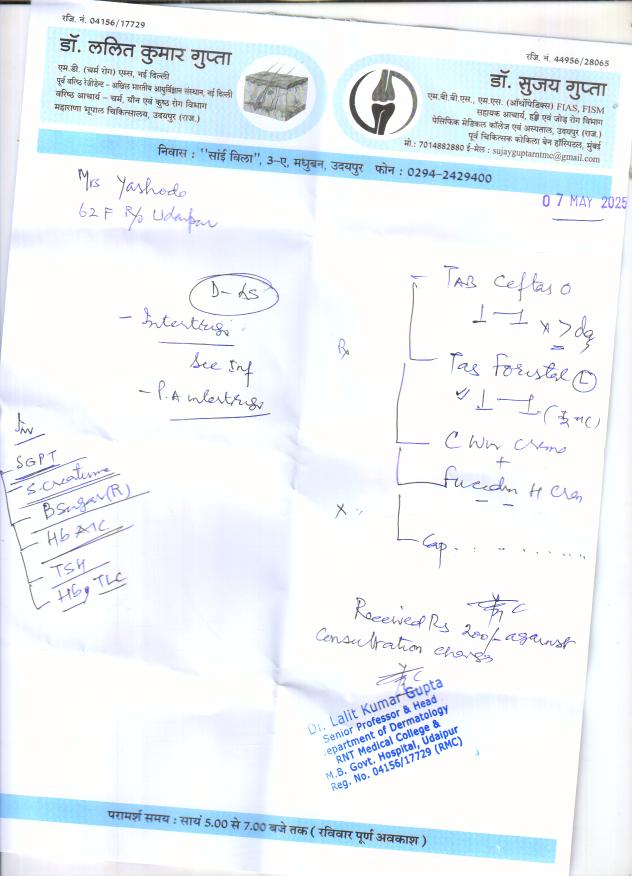 रजि. नं. 04156/17729
डॉ. ललित कुमार गुप्ता
एम.डी. (चर्म रोग) एम्स, नई दिल्ली
पूर्व वरिष्ठ रेजीडेन्ट - अखिल भारतीय आयुर्विज्ञान संस्थान, नई दिल्ली
वरिष्ठ आचार्य - चर्म, यौन एवं कुष्ठ रोग विभाग
महाराणा भूपाल चिकित्सालय, उदयपुर (राज.)
रजि. नं. 44956/28065
डॉ. सुजय गुप्ता
एम.बी.बी.एस., एम.एस. (ऑर्थोपेडिक्स) FIAS, FISM
सहायक आचार्य, हड्डी एवं जोड़ रोग विभाग
पेसिफिक मेडिकल कॉलेज एवं अस्पताल, उदयपुर (राज.)
पूर्व चिकित्सक कोकिला बेन हॉस्पिटल, मुंबई
मो.: 7014882880 ई-मेल : sujayguptarntmc@gmail.com
निवास : "सांई विला", 3-ए, मधुबन, उदयपुर फोन : 0294-2429400
07 MAY 2025
Mrs Yashoda
62 F R/o Udaipur
- Intertrigo
Sec Inf
- P.A intertrigo
Inv
SGPT
S. Creatinine
B Sugar (R)
Hb A1C
TSH
Hb, TLC
Rx
TAB Ceftas O
1-1 x
Tab
1-1
+
Fucidin H Cream
Cap. . . . . . . . .
Received Rs 200/- against
Consultation charges
Dr. Lalit Kumar Gupta
Senior Professor & Head
Department of Dermatology
RNT Medical College &
M.B. Govt. Hospital, Udaipur
Reg. No. 04156/17729 (RMC)
परामर्श समय : सायं 5.00 से 7.00 बजे तक ( रविवार पूर्ण अवकाश )